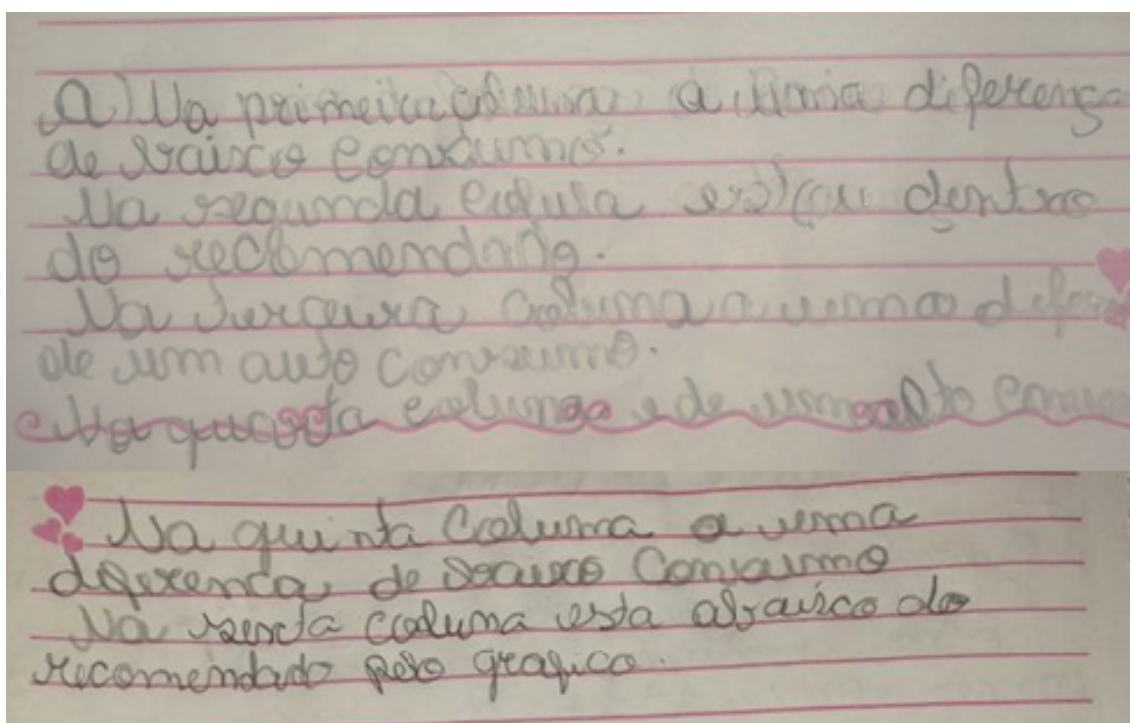 a) Na primeira coluna a uma diferença
de baixo consumo.
Na segunda coluna está dentro
do recomendado.
Na terceira coluna a uma
de um auto consumo.
Na quarta coluna e de um alto
Na quinta coluna a uma
diferença de baixo consumo
Na sexta coluna esta abaixo do
recomendado pelo grafico.